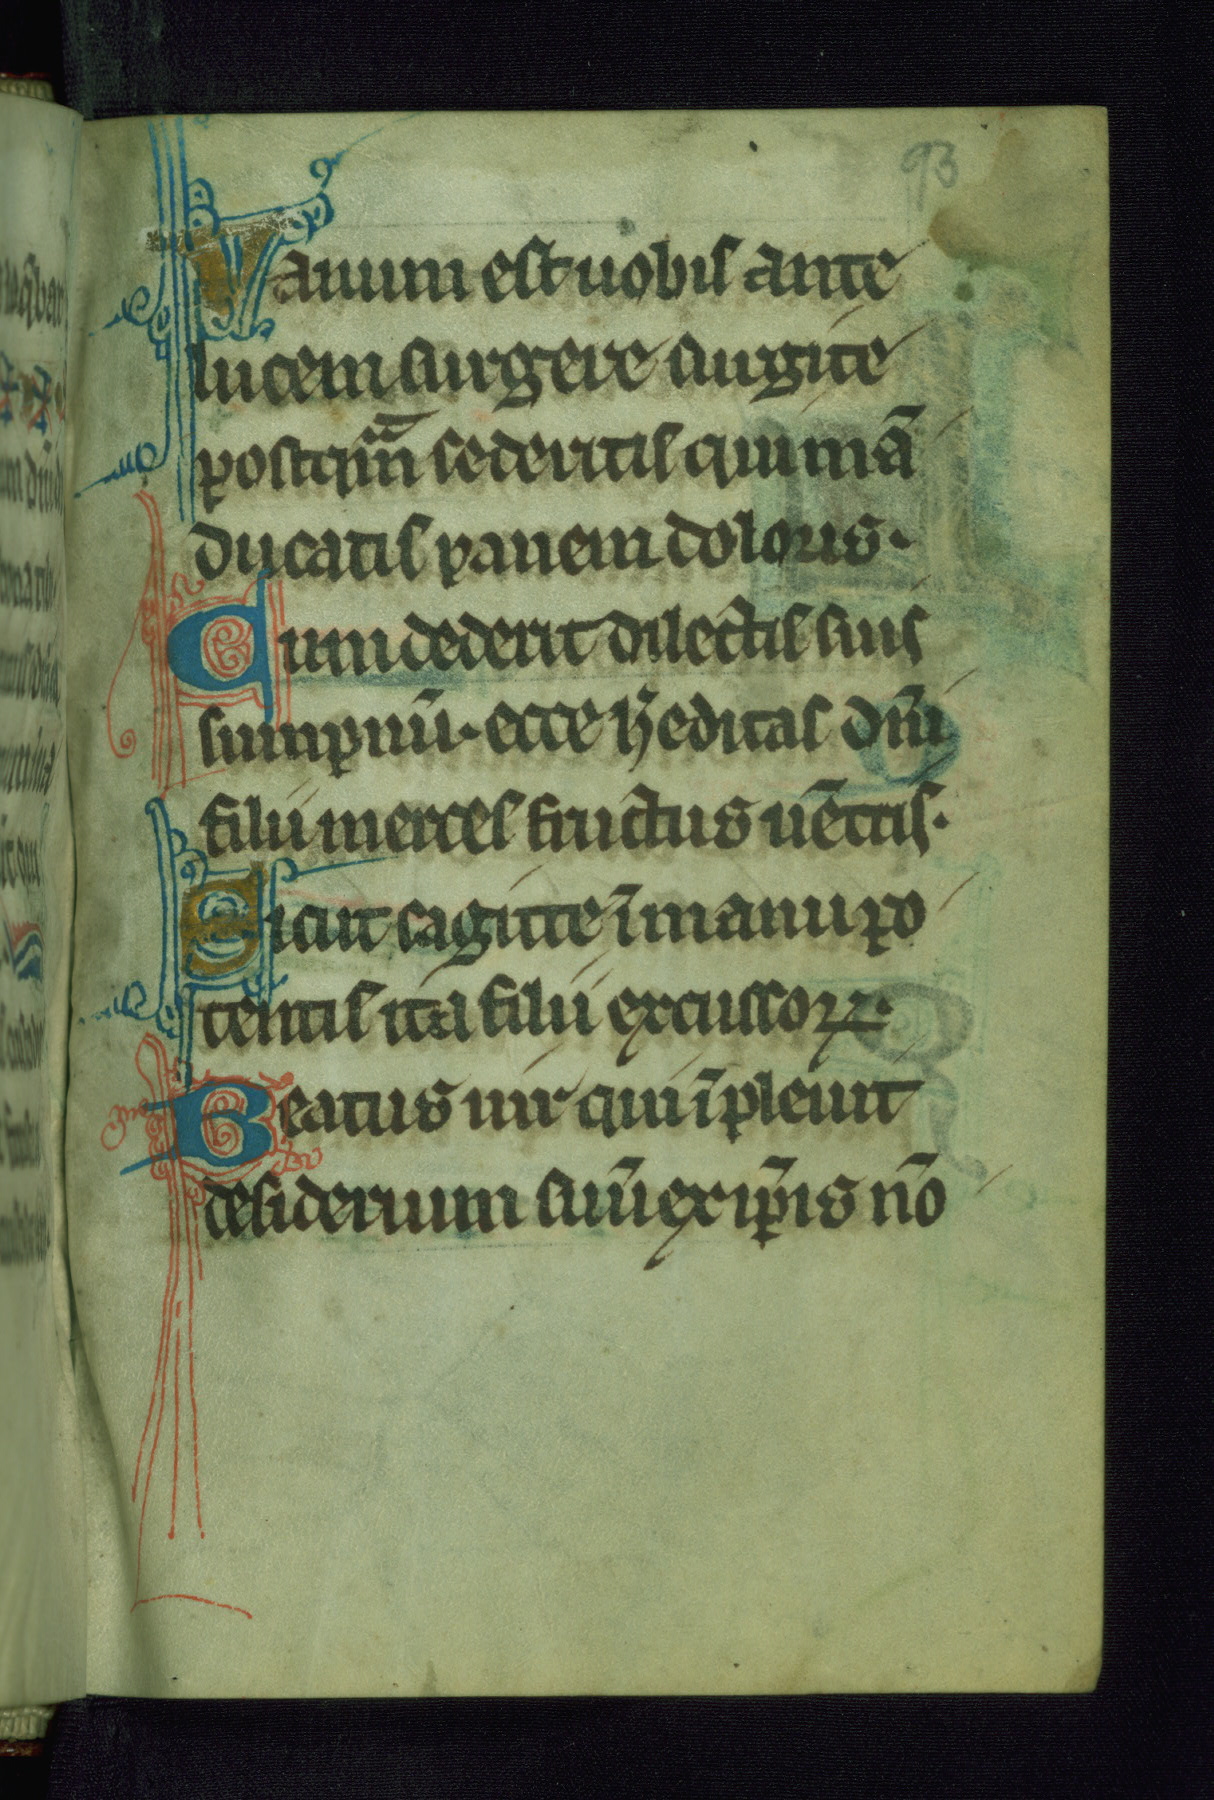 93
Vanum est uobis ante
lucem surgere surgite
postqm̄ sederitis qui mā
ducatis panem doloris.
Cum dederit dilectis suis
sumpnū. ecce h̓editas dn̄i
filii merces fructus uētris.
Sicut sagitte ī manu po
tentis ita filii excussoꝝ.
Beatus uir qui īpleuit
desiderium suū ex ip̄is nō